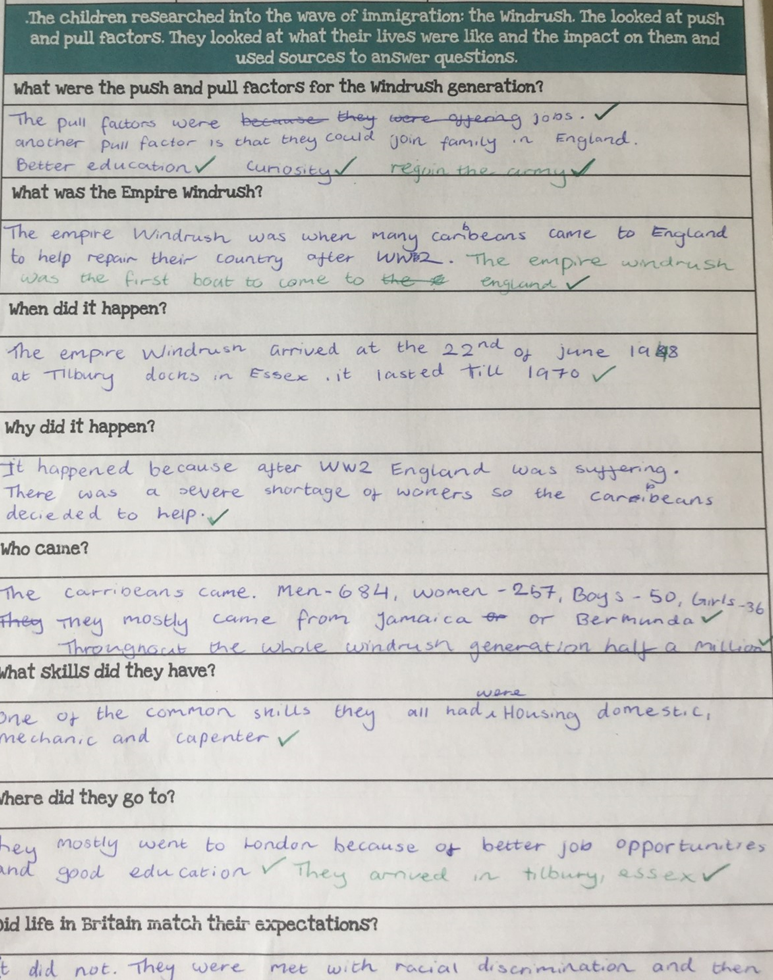 .The children researched into the wave of immigration: the Windrush. The looked at push
and pull factors. They looked at what their lives were like and the impact on them and
used sources to answer questions.
What were the push and pull factors for the Windrush generation?
The pull factors were because they were offering jobs. ✓
another pull factor is that they could join family in England.
Better education ✓ curiosity ✓ regoin the army ✓
What was the Empire Windrush?
The empire Windrush was when many caribeans came to England
to help repair their country after WW2. The empire windrush
was the first boat to come to the england ✓
When did it happen?
The empire Windrush arrived at the 22nd of june 1948
at Tilbury docks in Essex . it lasted till 1970 ✓
Why did it happen?
It happened because after WW2 England was suffering.
There was a severe shortage of worers so the caribeans
decieded to help. ✓
Who came?
The carribeans came. Men-684, women -257, Boys - 50, Girls -36
They They mostly came from Jamaica or or Bermunda ✓
Throughout the whole windrush generation half a million ✓
What skills did they have?
were
one of the common skills they all had Housing domestic,
mechanic and capenter ✓
Where did they go to?
hey mostly went to London because of better job opportunities
and good education ✓ They arrived in tilbury, essex ✓
Did life in Britain match their expectations?
t did not. They were met with racial discrimination and then